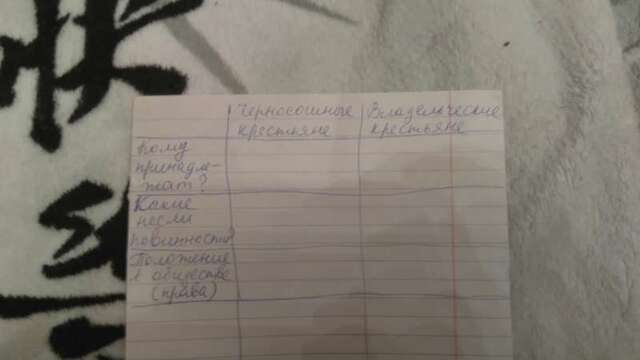 Черносошные Владельческие
крестьяне крестьяне
Кому
принадле-
жат?
Какие
несли
повинности?
Положение
в обществе
(права)